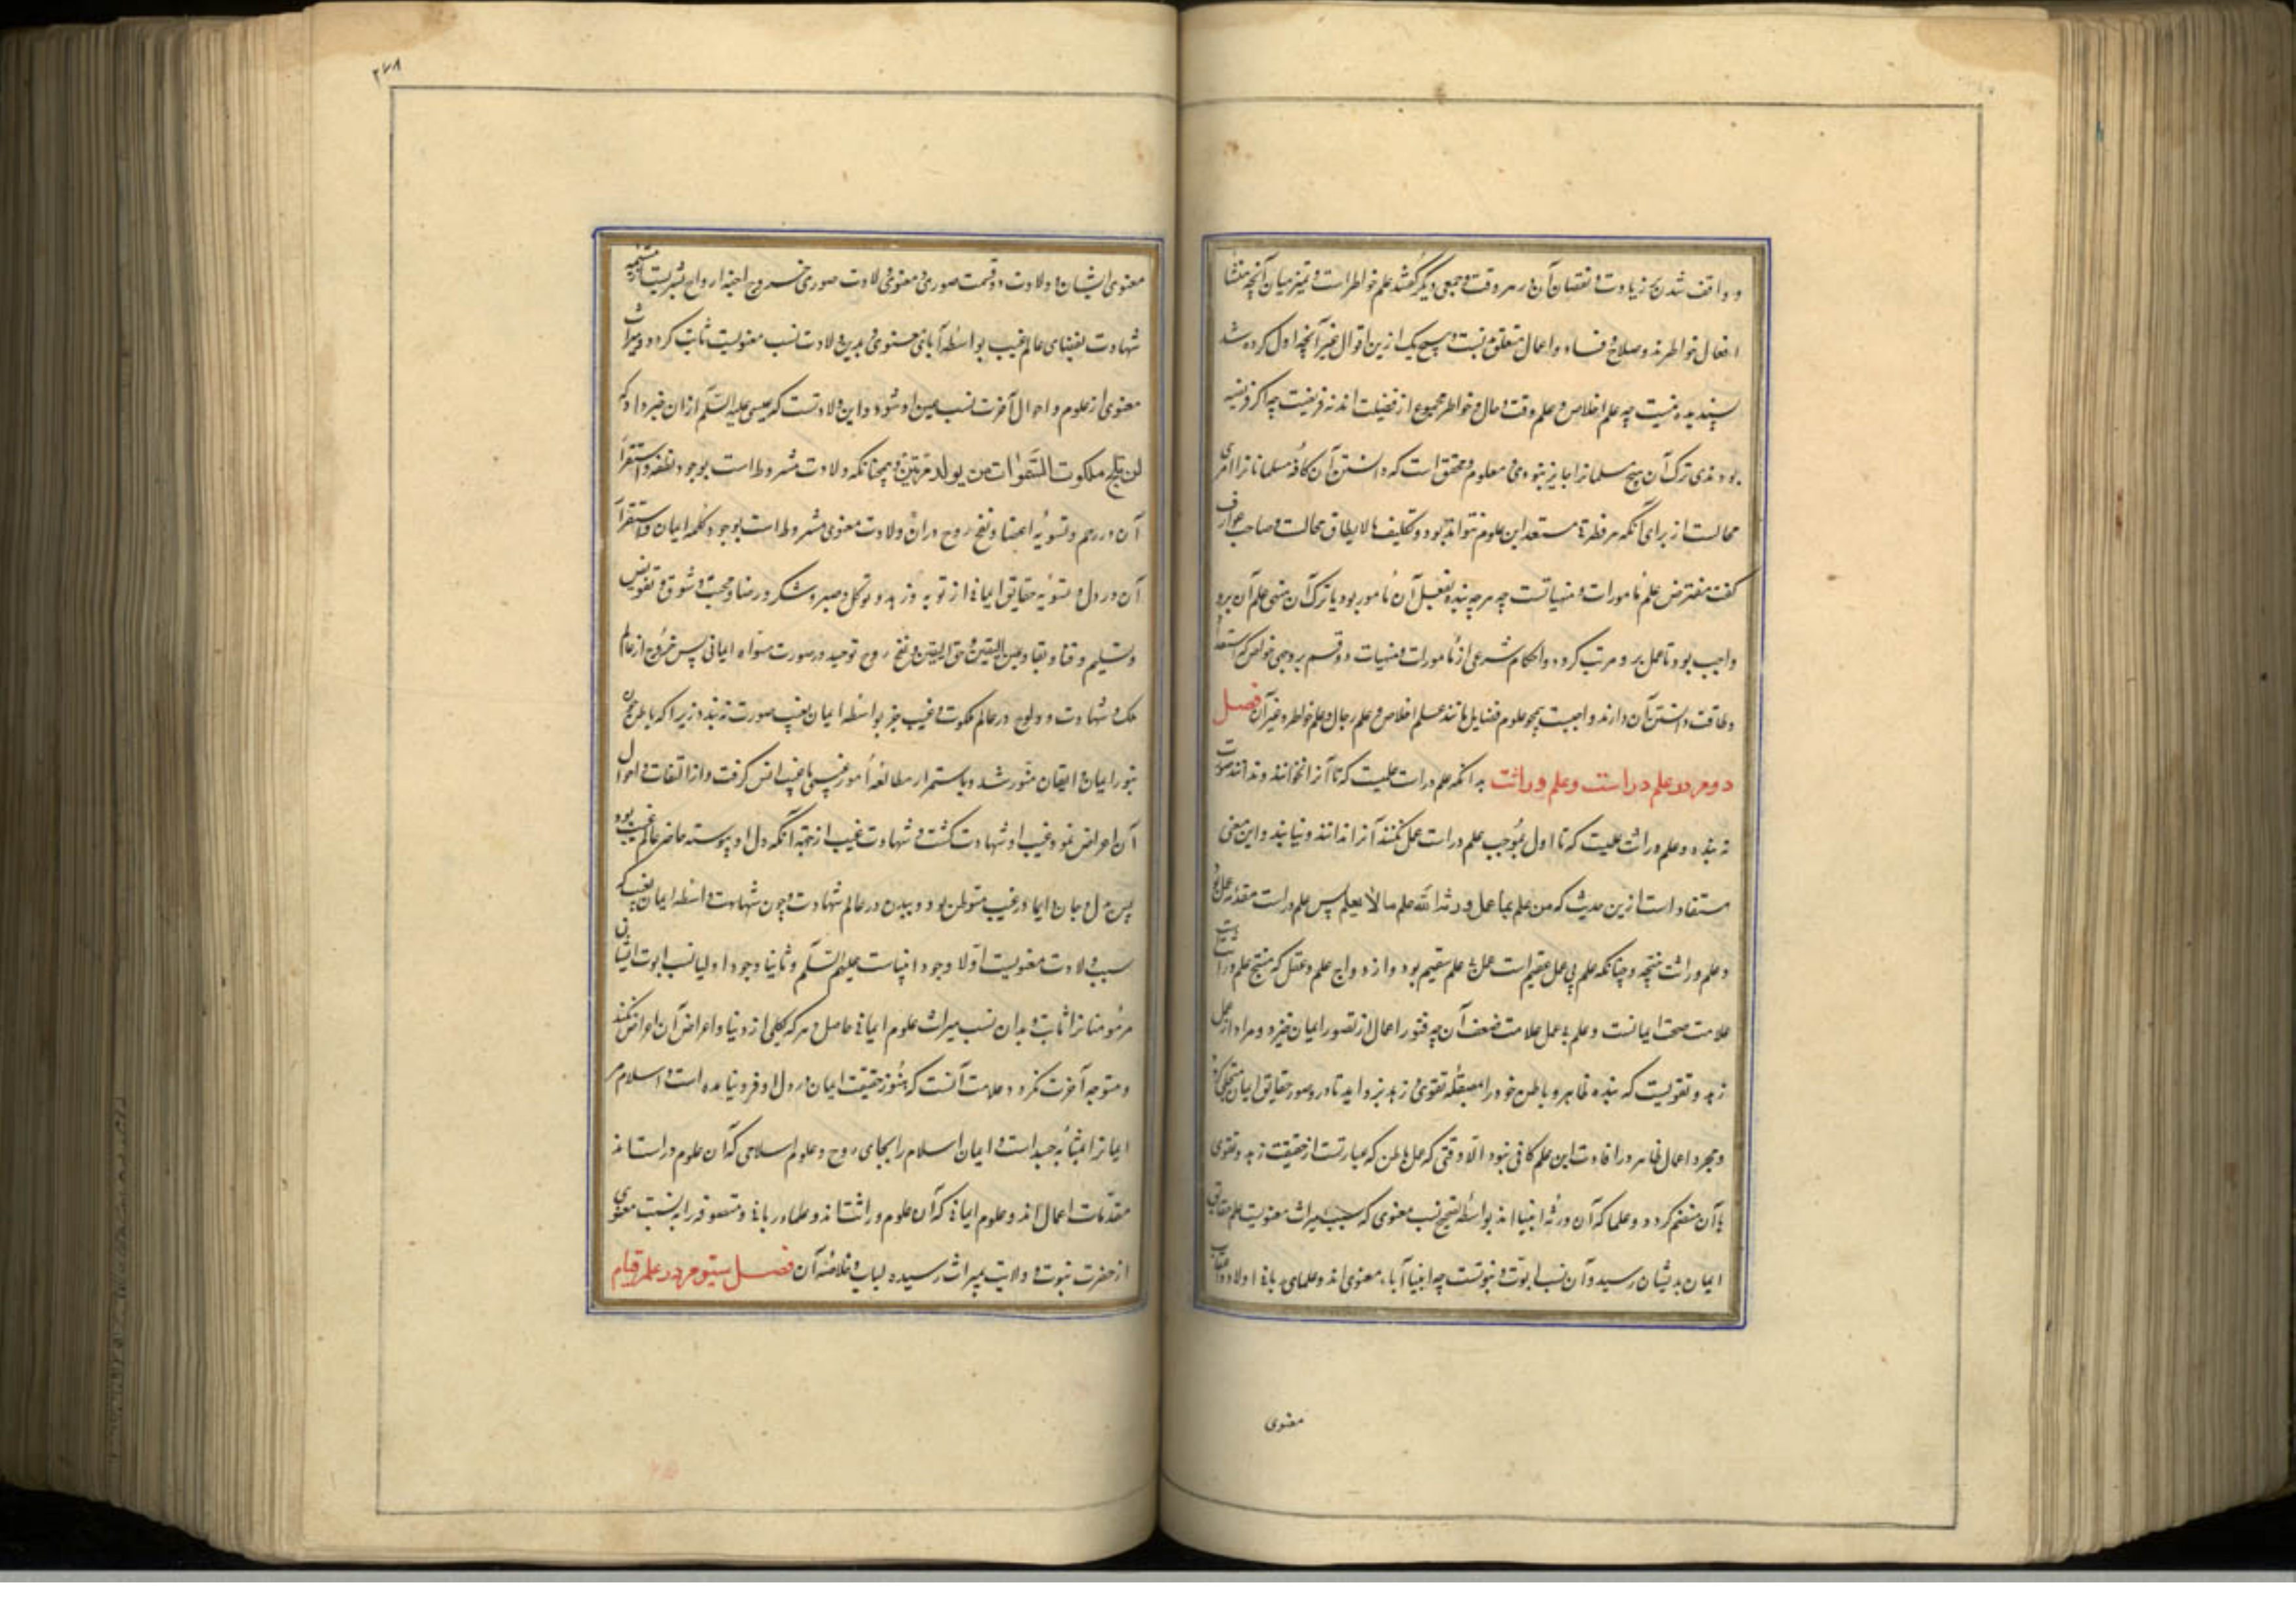 و واقف شدن بر زیادت و نقصان آن در هر وقت و جمعی دیگر گفتند علم خواطر است و تمیز میان آنچه منشأ
افعال خواطرند و صلاح و فساد و اعمال متعلق نیست و هیچ یک ازین اقوال غیر آنچه اول کرده شد
پسندیده نیست چه علم اخلاص و علم وقت و حال و خواطر مجموع از فضیلت اند نه فریضت چه اگر فریضه
بودندی ترک آن هیچ مسلمانرا جایز نبودی و معلوم و محقق است که دانستن آن کافه مسلمانانرا امری
محالست از برای آنکه هر فطرة مستعد این علوم نتواند بود و تکلیف مالایطاق محالت و صاحب عوارف
گفت مفترض علم مامورات و منهیاتست چه هرچه بنده بفعل آن مامور بود یا ترک آن منهی علم آن برو
واجب بود تا عمل برو مرتب گردد و احکام شرعی از مامورات و منهیات دو قسم بر وجهی خواص که استعداد
و طاقت دانستن آن دارند واجبست همچو علوم فضایل مانند علم اخلاص و علم رجال و علم خواطر و غیر آن فصل
دوم در علم دراست و علم وراثت بدانکه علم دراست علمیست که تا آنرا نخوانند و ندانند صورت
نبندد و علم وراثت علمیست که تا اول بموجب علم دراست عمل نکنند آنرا ندانند و نیابند و این معنی
مستفاد است ازین حدیث که من علم بما عمل ورثه الله علم مالا یعلم پس علم دراست مقدمه عمل بود
و علم وراثت نتیجه و چنانکه علم بی عمل عقیم است عمل بی علم سقیم بود و ازدواج علم و عقل که منتج علم وراثت است
علامت صحت ایمانست و علم بی عمل علامت ضعف آن چه فتور اعمال از قصور ایمان خیزد و مراد از عمل
زهد و تقویست که بنده ظاهر و باطن خود را بمصقله تقوی و زهد بزداید تا درو صور حقایق ایمان متجلی گردد
و مجرد اعمال ظاهر در افادت این علم کافی نبود الا وقتی که عمل باطن که عبارتست از حقیقت زهد و تقوی
با آن منضم گردد و علما که آن ورثه انبیا اند بواسطه تصحیح نسب معنوی که سبب میراث معنویست علم حقایق
ایمان بدیشان رسید و آن نسب ابوت و نبوتست چه انبیا آباء معنوی اند و علمای ربانی اولاد و اعقاب
معنوی
۲۷۸
معنوی ایشان و ولادت دو قسمت صوری و معنوی ولادت صوری خروج اجنه ارواح بشریست از مشیمه
شهادت بفضای عالم غیب بواسطه آبای معنوی و بدین ولادت نسب معنویست ثابت گردد و میراث
معنوی از علوم و احوال آخرت نسب عین او شود و این ولادتست که عیسی علیه السلام ازان خبر داد که
لن یلج ملکوت السموات من لم یولد مرتین و همچنانکه ولادت مشروط است بوجود نطفه و استقرار
آن در رحم و تسویه اعضا و نفخ روح دران ولادت معنوی مشروط است بوجود کلمه ایمان و استقرار
آن در دل و تسویه حقایق ایمانی از توبه و زهد و توکل و صبر و شکر و رضا و محبت و شوق و تفویض
و تسلیم و فنا و بقا و عین الیقین و حق الیقین و نفخ روح توحید در صورت مسواه ایمانی پس خروج از عالم
ملک و شهادت و ولوج در عالم ملکوت و غیب جز بواسطه ایمان بغیب صورت نبندد زیرا که باطن چون
بنور ایمان و ایقان منور شد و باستمرار مطالعه امور غیبی با غیب انس گرفت و از التفات و احوال
آن اعراض نمود غیب او شهادت گشت و شهادت غیب از جهة آنکه دل او پیوسته حاضر عالم غیب بود
پس بدل و جان دایما در غیب متوطن بود و ببدن در عالم شهادت و چون شهادت واسطه ایمان بغیب که
سبب ولادت معنویست اولا وجود انبیاست علیهم السلام و ثانیا وجود اولیا نسب ابوت ایشانی
مر مومنانرا ثابت و بدان نسب میراث علوم ایمانی حاصل و هر که بکلی از دنیا و اعراض آن اعراض نکند
و متوجه آخرت نگردد علامت آنست که هنوز حقیقت ایمان در دل او فرو نیامده است و اسلام مر
ایمانرا بمثابه جسد است و ایمان اسلام را بجای روح و علوم اسلامی که آن علوم دراستند
مقدمات اعمال اند و علوم ایمانی که آن علوم وراثتند و علماء ربانی و متصوفه را به نسبت معنوی
از حضرت نبوت و ولایت بمیراث رسیده لباب و خلاصه آن فصل سیوم در علم قیام